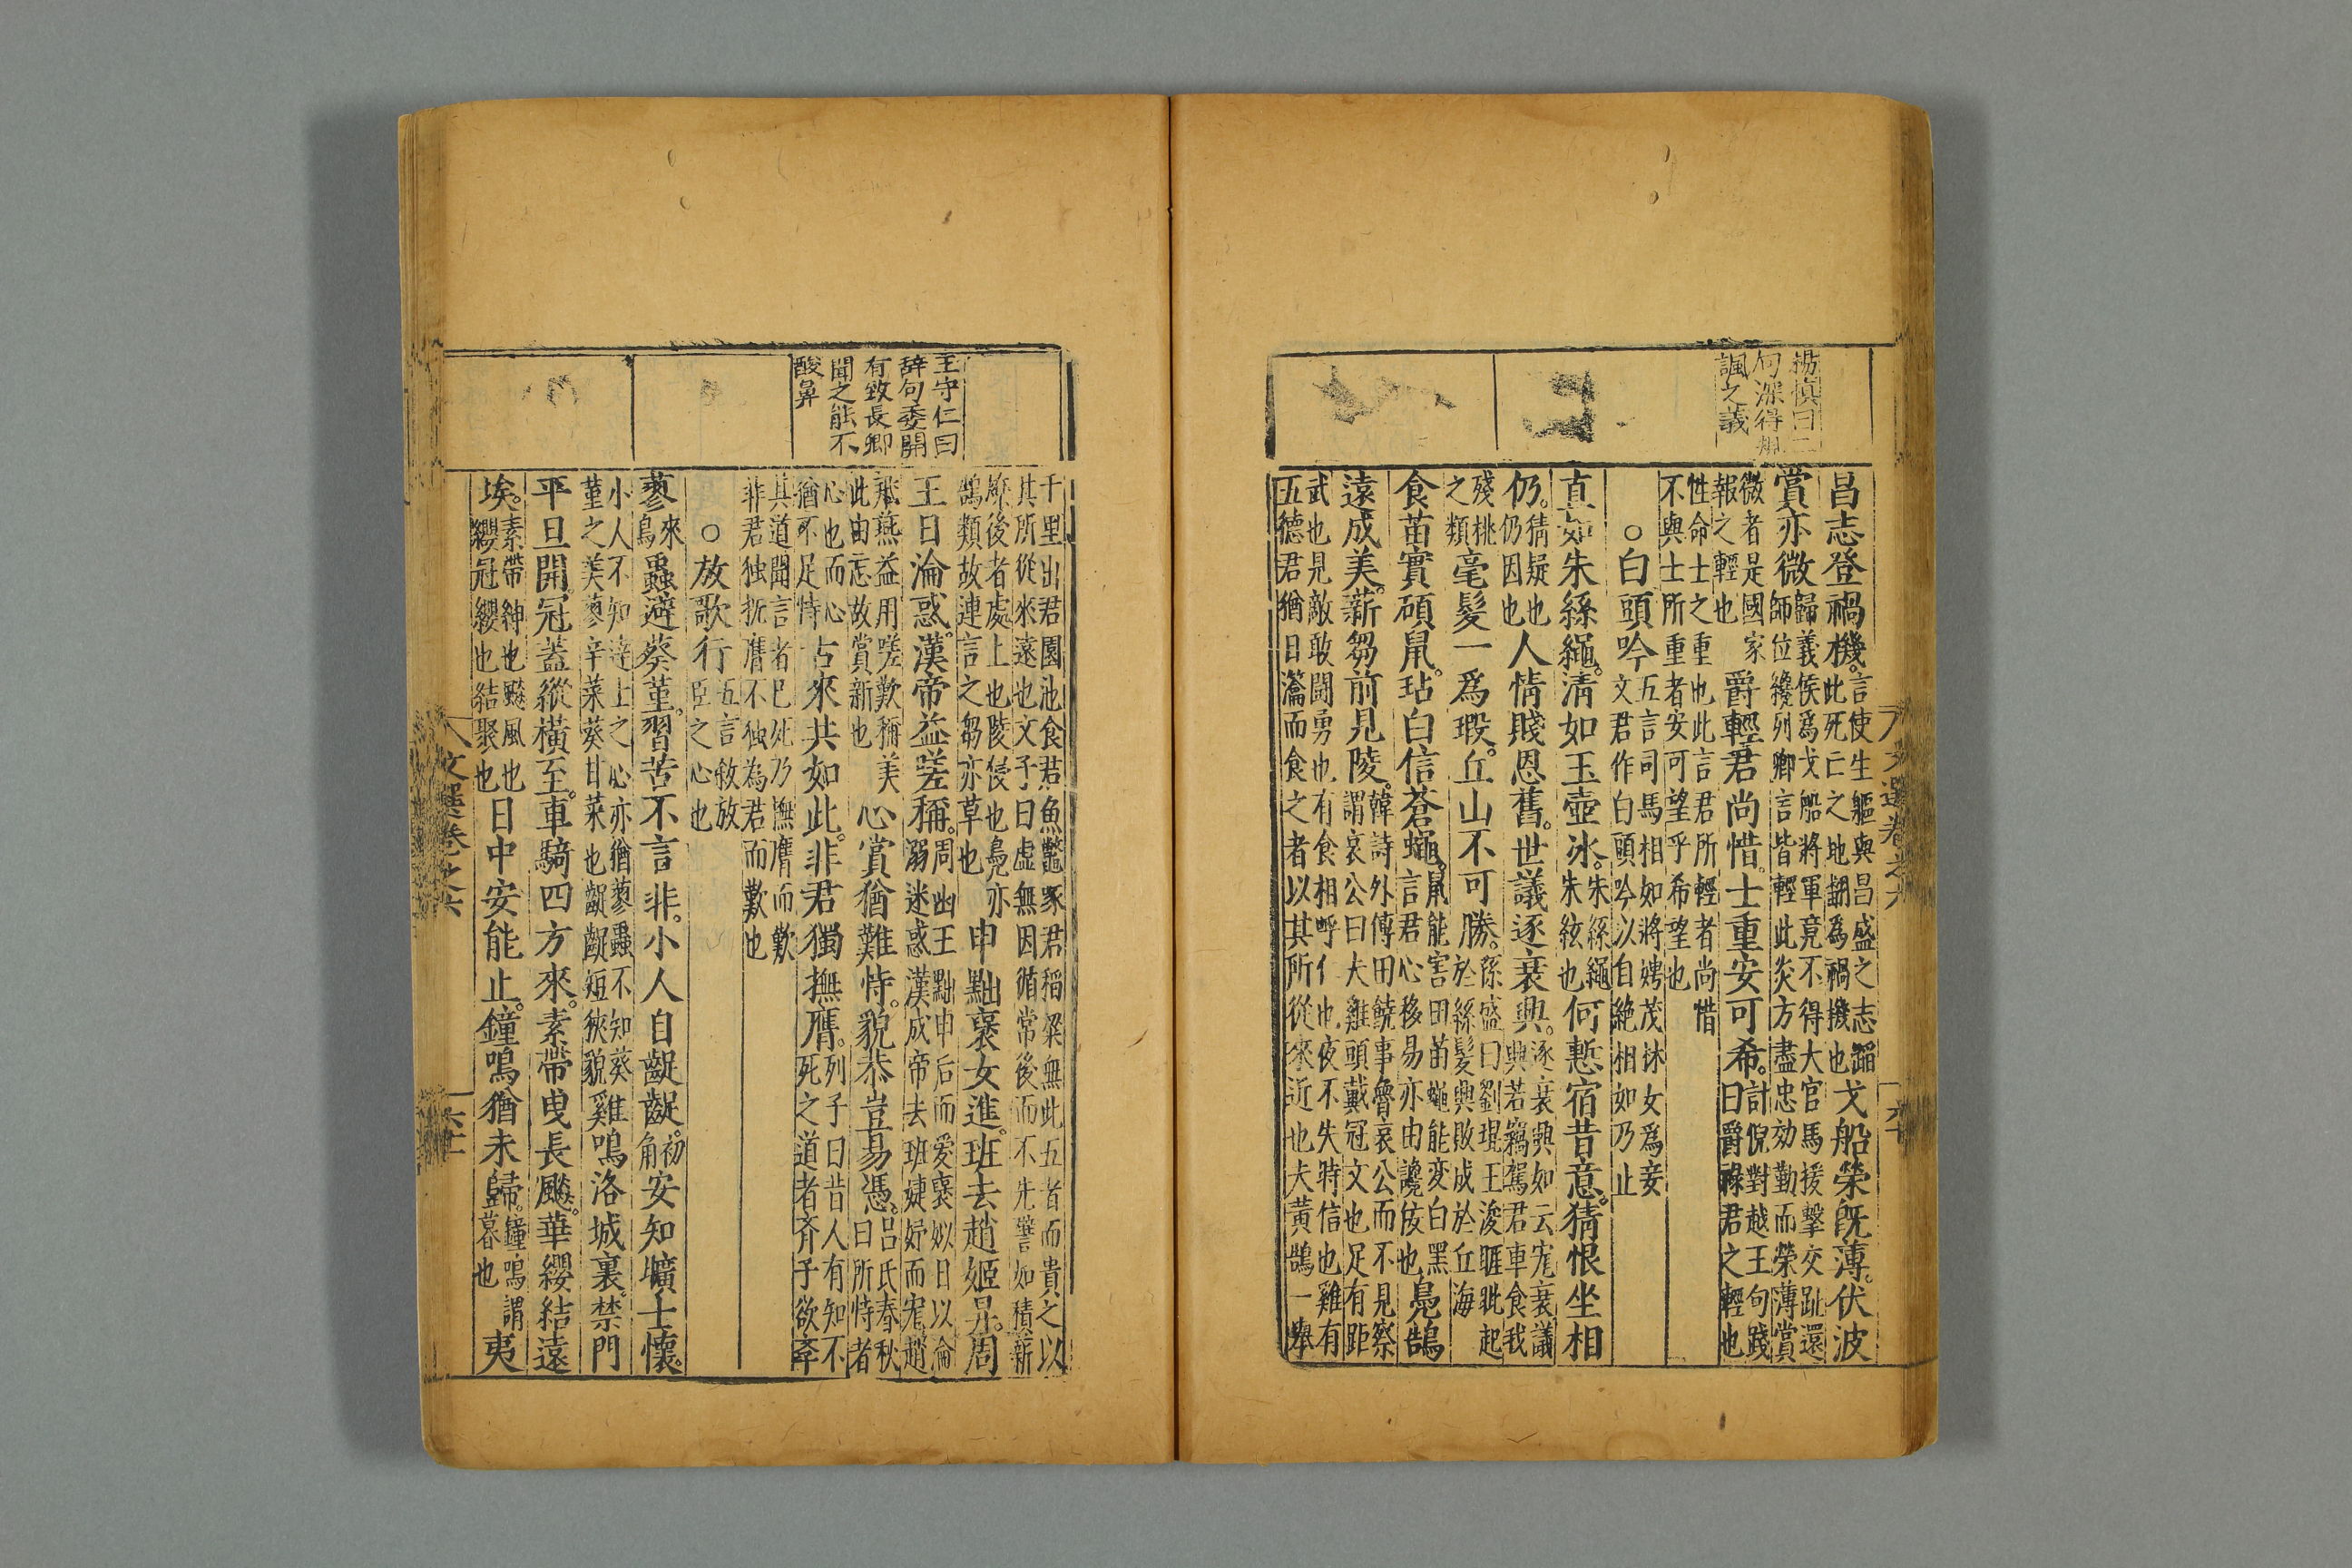 楊慎曰二
句深得規
諷之義
昌志登禍機言使生軀與昌盛之志蹈
此死亡之地翻為禍機也戈船榮旣薄伏波
賞亦微歸義侯為戈船將軍竟不得大官馬援擊交趾還
師位纔列卿言皆輕此炎方盡忠効勤而榮薄賞
微者是國家
報之輕也爵輕君尚惜士重安可希計倪對越王句踐
曰爵祿君之輕也
性命士之重也此言君所輕者尚惜
不與士所重者安可望乎希望也
○白頭吟五言司馬相如將娉茂林女為妾
文君作白頭吟以自絕相如乃止
直如朱絲繩清如玉壺冰朱絲繩
朱絃也何慙宿昔意猜恨坐相
仍猜疑也
仍因也人情賤恩舊世議逐衰興逐衰興如云宠衰議
興若竊駕君車食我
殘桃
之類毫髮一為瑕丘山不可勝孫盛曰劉琨王浚睚眦起
於絲髮興敗成於丘海
食苗實碩鼠玷白信蒼蠅鼠能害田苗蠅能变白黑
言君心移易亦由讒佞也鳧鵠
遠成美薪芻前見陵韓詩外傳田饒事魯哀公而不見察
謂哀公曰夫雞頭戴冠文也足有距
武也見敵敢鬪勇也有食相呼仁也夜不失時信也雞有
五德君猶日瀹而食之者以其所從來近也夫黃鵠一舉
文選卷之六
王守仁曰
辞句委開
有致長卿
聞之能不
酸鼻
千里出君園池食君魚鼈啄君稻粱無此五者而貴之以
其所從來遠也文子曰虛無因循常後而不先譬如積薪
燎後者處上也陵侵也鳧亦
鵠類故連言之芻亦草也申黜褒女進班去趙姬昇周
王日淪惑漢帝益嗟稱周幽王黜申后而愛褒姒日以淪
溺迷惑漢成帝去班婕妤而宠趙
飛燕益用嗟歎稱美
此由忘故賞新也心賞猶難恃貌恭豈易憑呂氏春秋
曰所恃者
心也而心
猶不足恃古來共如此非君獨撫膺列子曰昔人有知不
死之道者齐子欲斈
其道聞言者已死乃憮膺而歎
非君独抚膺不独為君而歎也
○放歌行五言敘放
臣之心也
蓼來
鳥蟲避葵堇習苦不言非小人自齷齪初
角安知壙士懷
小人不知達士之心亦猶蓼蟲不知葵
堇之美蓼辛菜葵甘菜也齷齪短狹貌雞鳴洛城裏禁門
平旦開冠蓋縱橫至車騎四方來素帶曳長飈華纓結遠
埃素帶紳也飈風也
纓冠纓也結聚也日中安能止鐘鳴猶未歸鐘鳴謂
暮也夷
文選卷之六